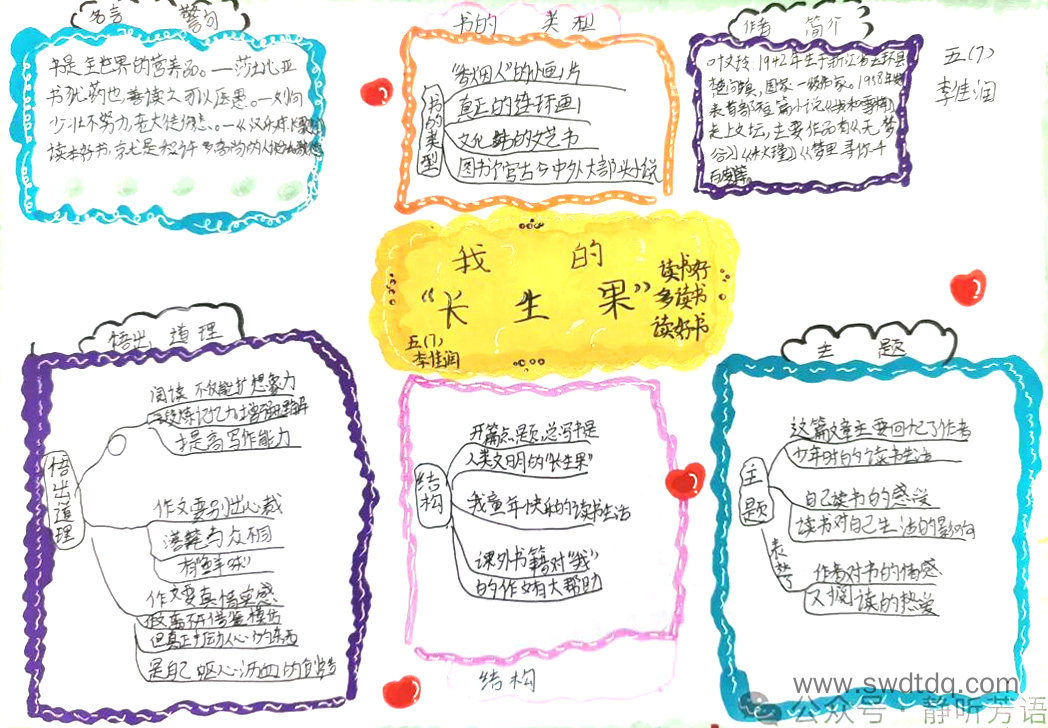 名言 警句
书是全世界的营养品。——莎士比亚
书犹药也,善读之可以医愚。——刘向
少壮不努力,老大徒伤悲。——《汉乐府
读本好书,就是和许多高尚的人
书的 类型
书的类型
"香烟人"的小画片
真正的连环画
文化 的文艺书
图书馆 古今中外大部头小说
作者 简介
叶文玲 1942年生于浙江省玉环县
楚门镇,国家一级作家。1958年发
表首部短篇小说《我和雪梅》
走上文坛,主要作品有《无 梦
谷》《秋瑾》《梦里寻你千
百度》等
五(7)
李佳润
我 的
"长 生 果"
读书好
多读书
读好书
五(7)
李佳润
悟出 道理
悟出道理
阅读 不仅能扩 想象力
锻炼记忆力增强理解
提高写作能力
作文要别出心裁
落笔与众不同
有"鲜味"
作文要真情实感
借鉴模仿
但真正打动人心的东西
是自己 呕心沥血的
结构
开篇点题,总写书是
人类文明的"长生果"
我童年快乐的读书生活
课外书籍对"我"
的作文有大帮助
结构
主 题
主题
这篇文章主要回忆了作者
少年时的读书生活
自己读书的感受
读书对自己生活的影响
表达了
作者对书的情感
对阅读的热爱
www.swdtdq.com
公众号·静听芳语